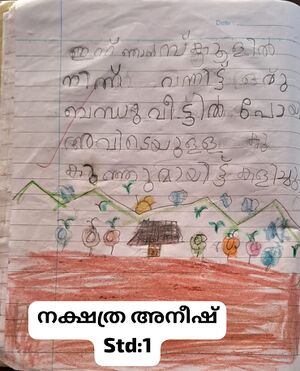 Date
ഇന്ന് ഞാൻ സ്കൂളിൽ
നിന്ന് വന്നിട്ട് ഒരു
ബന്ധുവീട്ടിൽ പോയ
അവിടെയുള്ള കു
കുഞ്ഞുമായിട്ട് കളിച്ചു
നക്ഷത്ര അനീഷ്
Std:1